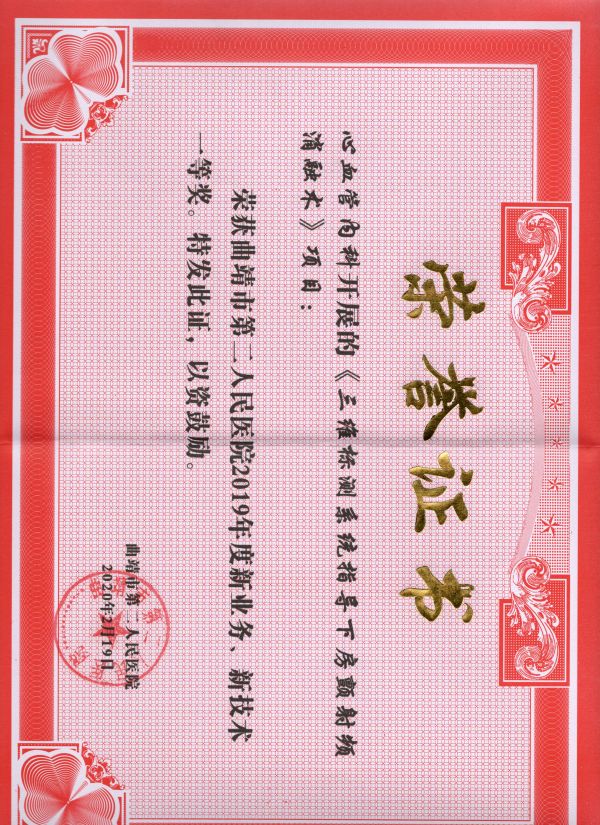 荣誉证书
心血管内科开展的《三维标测系统指导下房颤射频
消融术》项目：
荣获曲靖市第二人民医院2019年度新业务、新技术
一等奖。特发此证，以资鼓励。
曲靖市第二人民医院
2020年2月19日